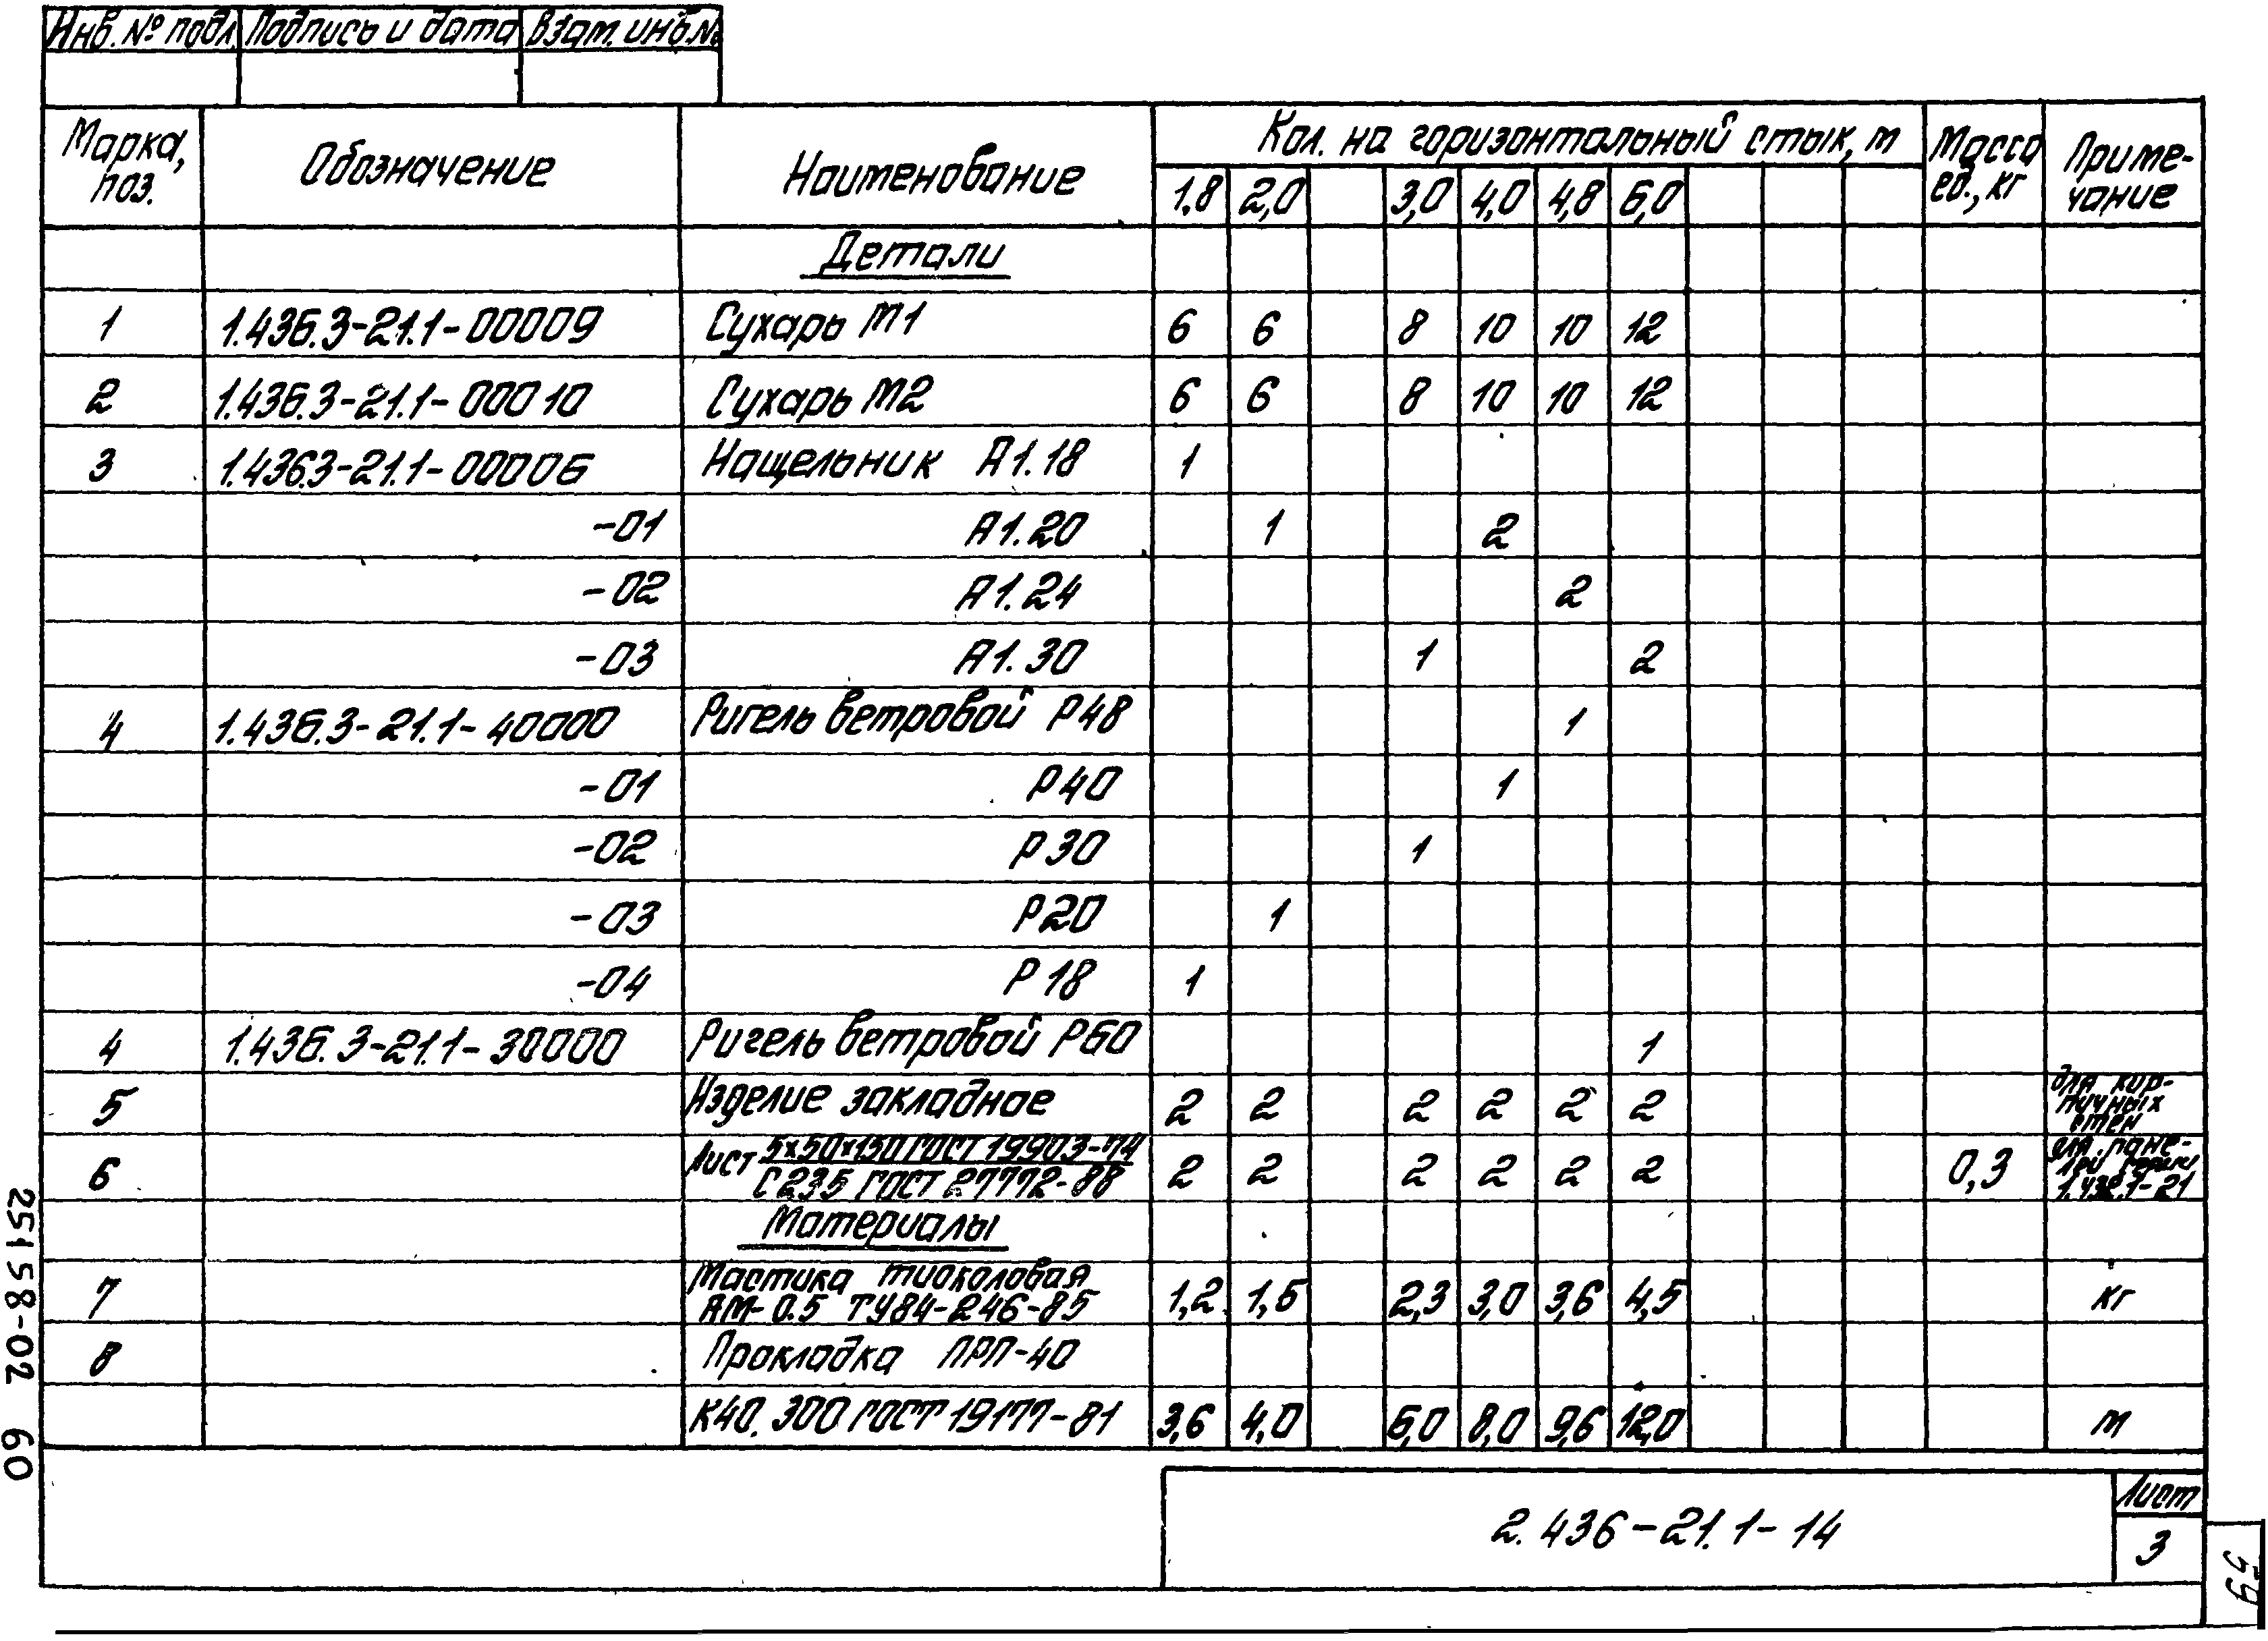 Инв. № подл. Подпись и дата Взам. инв. №
Марка, поз. Обозначение Наименование Кол. на горизонтальный стык, м Масса ед., кг Приме-чание
1.8 2,0 3,0 4,0 4,8 6,0
Детали
1 1.436.3-21.1-00009 Сухарь М1 6 6 8 10 10 12
2 1.436.3-21.1-00010 Сухарь М2 6 6 8 10 10 12
3 1.4363-21.1-00006 Нащельник А1.18 1
-01 А1.20 1 2
-02 А1.24 2
-03 А1.30 1 2
4 1.436.3-21.1-40000 Ригель ветровой Р48 1
-01 Р40 1
-02 Р30 1
-03 Р20 1
-04 Р18 1
4 1.436.3-21.1-30000 Ригель ветровой Р60 1
5 Изделие закладное 2 2 2 2 2 2 для кир-пичных стен
6 Лист 5×50×150 ГОСТ 19903-74 2 2 2 2 2 2 0,3 для пане-лей серии
С235 ГОСТ 27772-88 1.432.1-21
Материалы
7 Мастика тиоколовая 1,2 1,5 2,3 3,0 3,6 4,5 кг
АМ-0.5 ТУ84-246-85
8 Прокладка ПРП-40
К40.300 ГОСТ 19177-81 3,6 4,0 6,0 8,0 9,6 12,0 м
2.436-21.1-14
Лист
3
25158-02 60
59